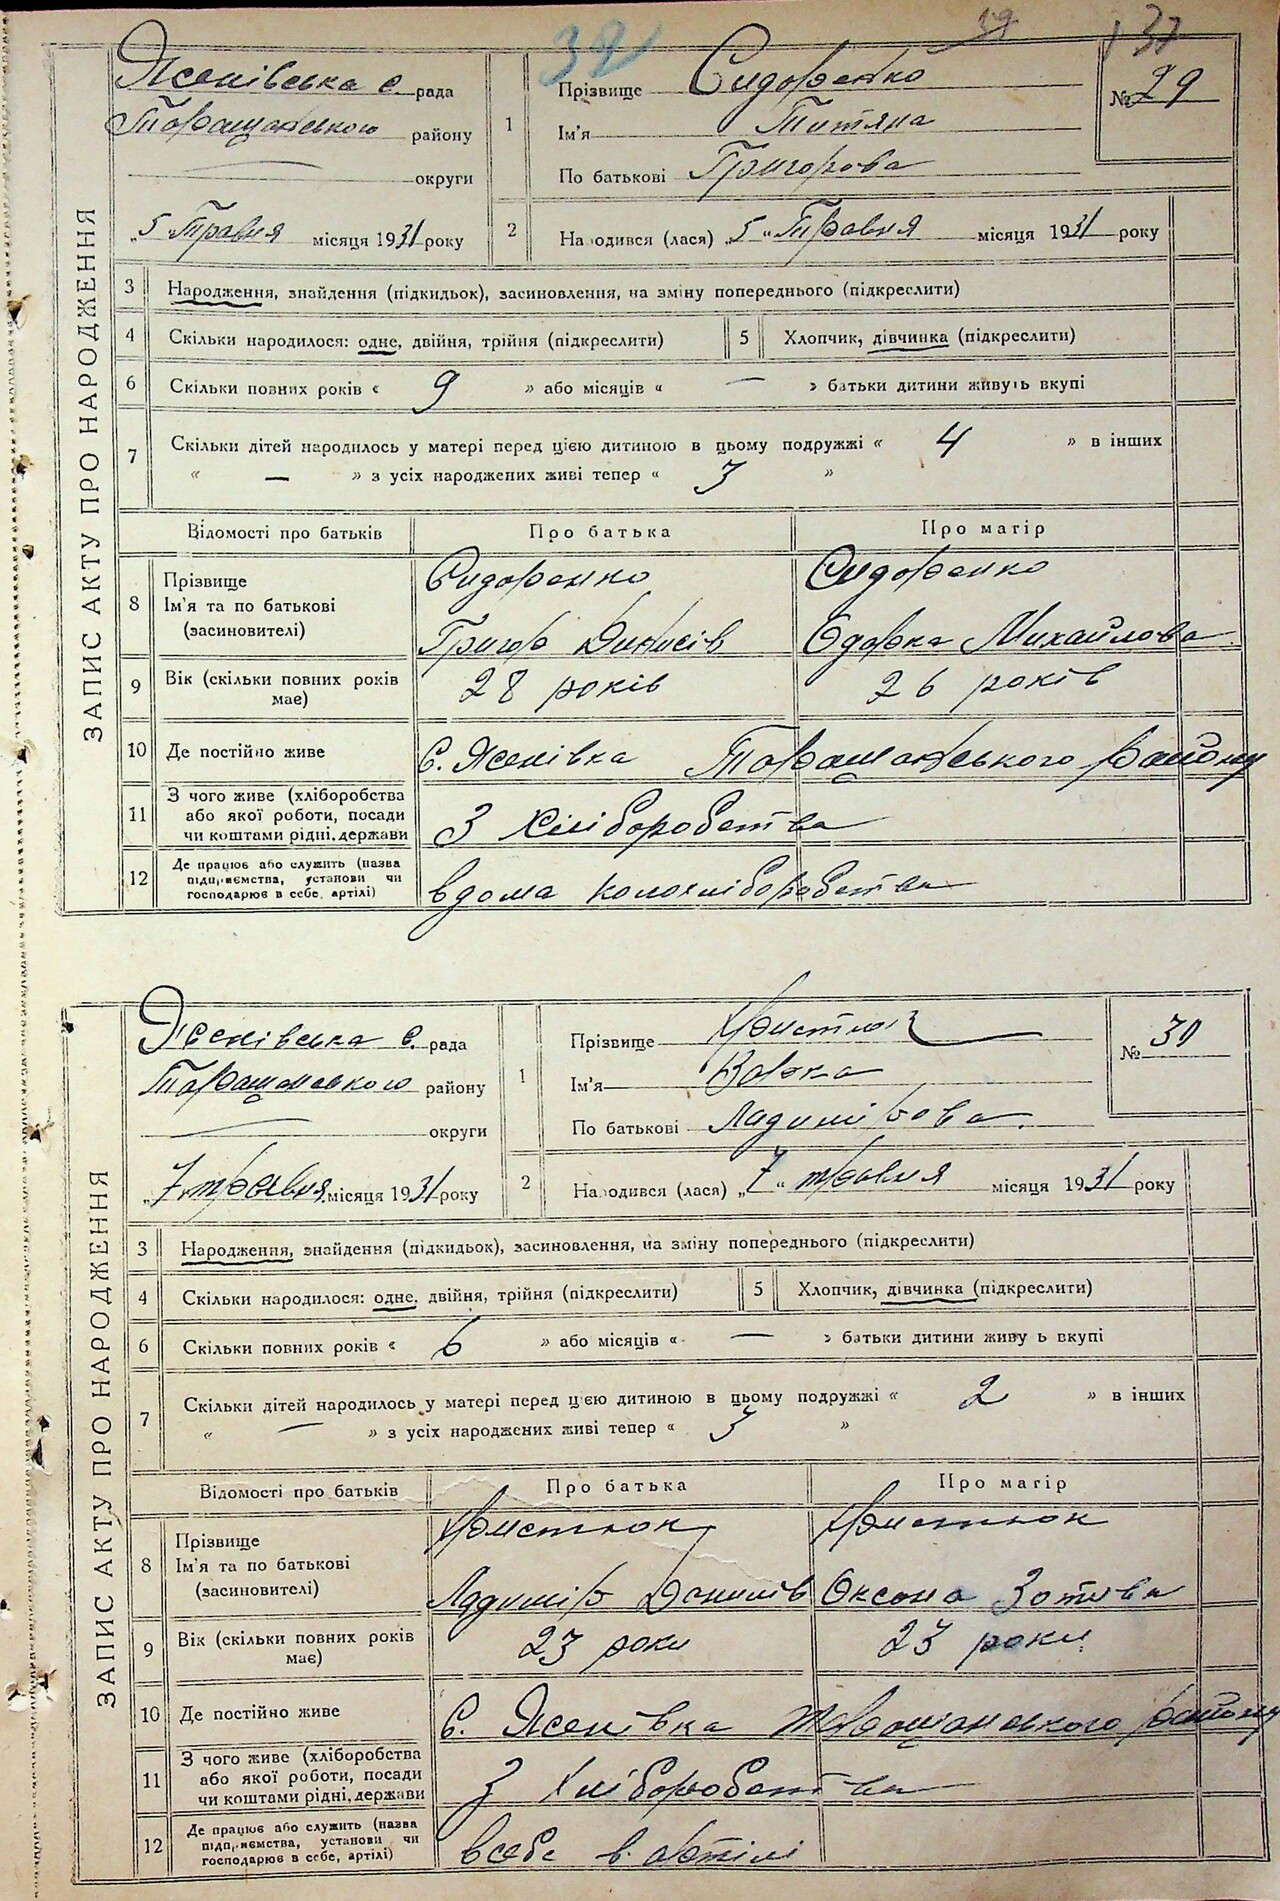 32
39
ЗАПИС АКТУ ПРО НАРОДЖЕННЯ
Ясенівська с. рада
Таращанського району
округи
„5 Травня місяця 1931 року
1 Прізвище Сидоренко
Ім'я Титяна
По батькові Григорова
№ 29
2 Народився (лася) „5“ Травня місяця 1931 року
3 Народження, знайдення (підкидьок), засиновлення, на зміну попереднього (підкреслити)
4 Скільки народилося: одне, двійня, трійня (підкреслити) 5 Хлопчик, дівчинка (підкреслити)
6 Скільки повних років « 9 » або місяців « — » батьки дитини живуть вкупі
7 Скільки дітей народилось у матері перед цією дитиною в цьому подружжі « 4 » в інших
« — » з усіх народжених живі тепер « 3 »
Відомості про батьків Про батька Про матір
8 Прізвище Сидоренко Сидоренко
Ім'я та по батькові
(засновителі) Григор Денисів Одарка Михайлова
9 Вік (скільки повних років має) 28 років 26 років
10 Де постійно живе С. Ясенівка Таращанського району
11 З чого живе (хліборобства
або якої роботи, посади
чи коштами рідні, держави З хліборобства
12 Де працює або служить (назва
підприємства, установи чи
господарює в себе, артілі) вдома коло хліборобства
ЗАПИС АКТУ ПРО НАРОДЖЕННЯ
Ясенівська с. рада
Таращанського району
округи
„7 травня місяця 1931 року
1 Прізвище Христюк
Ім'я Варка
По батькові Ладимірова
№ 30
2 Народився (лася) „7“ травня місяця 1931 року
3 Народження, знайдення (підкидьок), засиновлення, на зміну попереднього (підкреслити)
4 Скільки народилося: одне, двійня, трійня (підкреслити) 5 Хлопчик, дівчинка (підкреслити)
6 Скільки повних років « 6 » або місяців « — » батьки дитини живу ь вкупі
7 Скільки дітей народилось у матері перед цією дитиною в цьому подружжі « 2 » в інших
« — » з усіх народжених живі тепер « 3 »
Відомості про батьків Про батька Про матір
8 Прізвище Христюк Христюк
Ім'я та по батькові
(засиновителі) Ладимір Данилів Оксана Зотова
9 Вік (скільки повних років має) 23 роки 23 роки
10 Де постійно живе С. Ясенівка Таращанського району
11 З чого живе (хліборобства
або якої роботи, посади
чи коштами рідні, держави З хліборобства
12 Де працює або служить (назва
підприємства, установи чи
господарює в себе, артілі) в себе в артілі